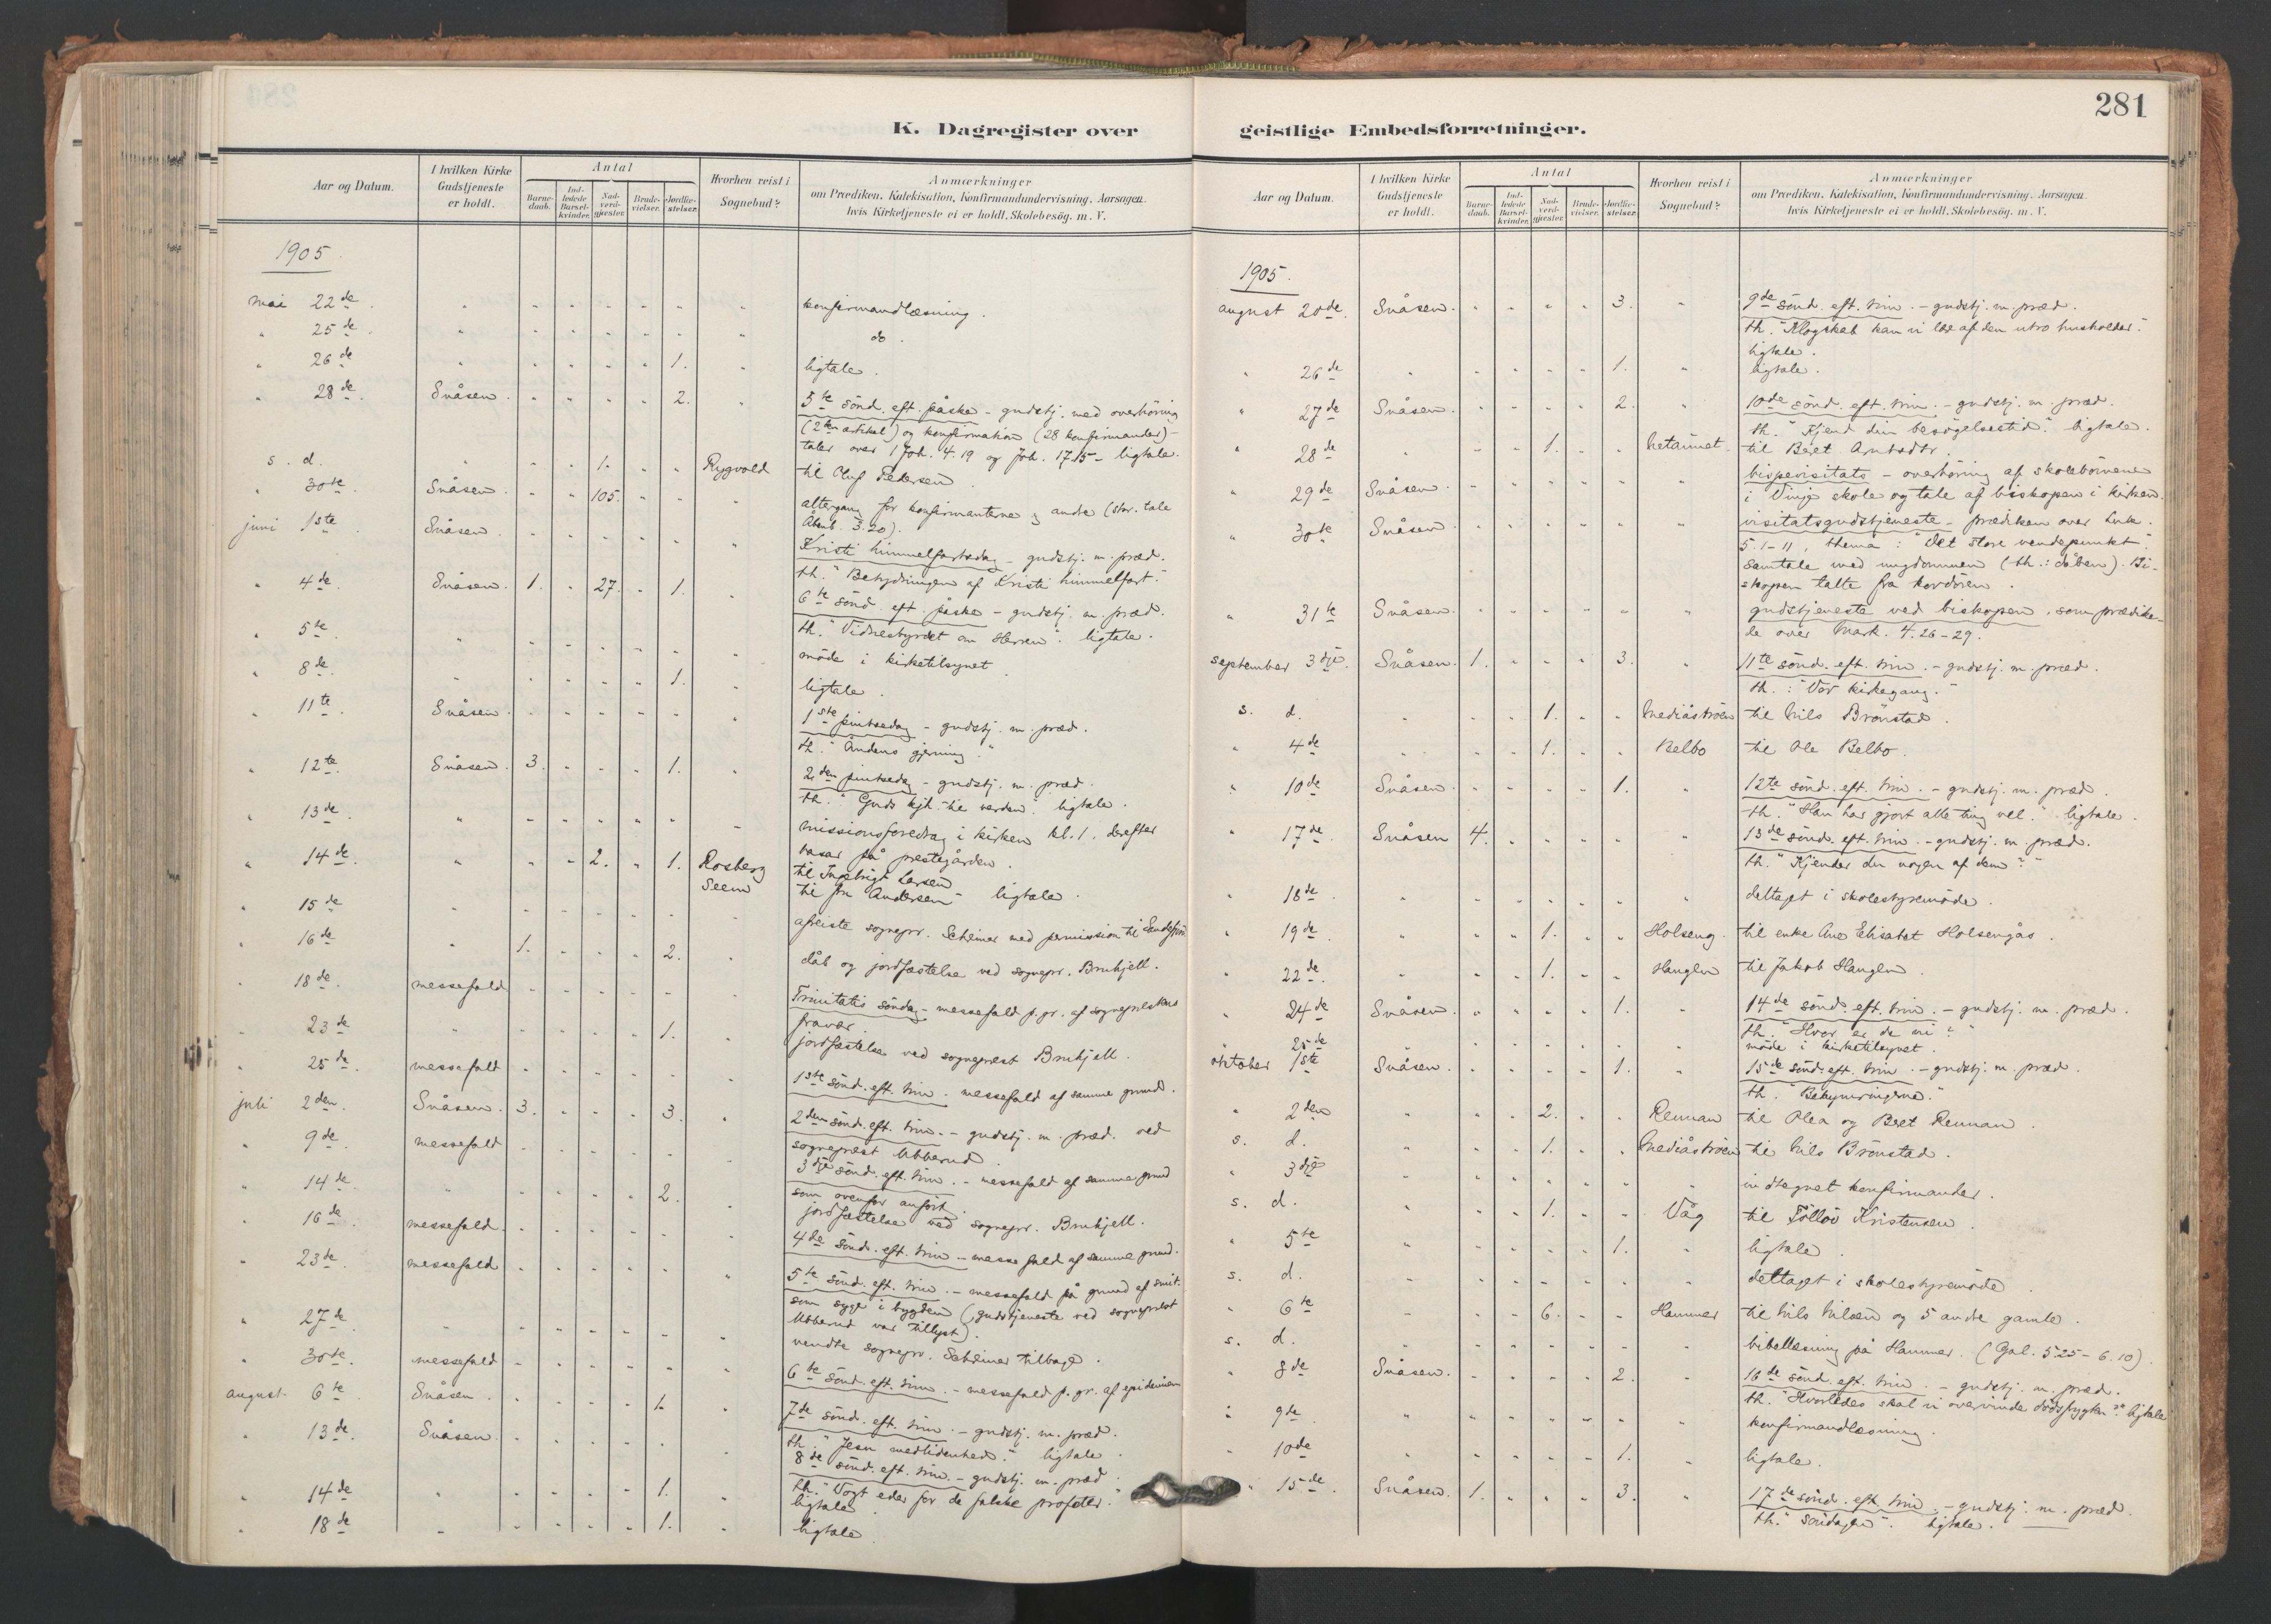 281
K. Dagregister over geistlige Embedsforretninger.
Aar og Datum. I hvilken Kirke Gudstjeneste er holdt. Antal Barne-daab. Ind-ledede Barsel-kvinder. Nad-verd-gjester. Brude-vielser. Jordfæ-stelser. Hvorhen reist i Sognebud? Anmærkninger om Prædiken, Katekisation, Konfirmandundervisning, Aarsagen hvis Kirketjeneste ei er holdt, Skolebesøg. m. V.
1905.
mai 22de. konfirmandlæsning.
" 25de. do.
" 26de 1. ligtale.
" 28de. Snåsen. 2. 5te sönd. eft. påske - gudstj. med overhöring
(2den artikel) og konfirmation (28 konfirmander) -
taler over 1 Joh. 4.19 og Joh. 17.15 - ligtale.
s. d. 1. Rygvold til Oluf Pedersen.
" 30te. Snåsen. 105. altergang for konfirmanterne og andre (skr. tale
Åbenb. 3.20).
juni 1ste Snåsen. Kristi himmelfartsdag - gudstj. m. præd.
th. "Betydningen af Kristi himmelfart."
" 4de. Snåsen. 1. 27. 1. 6te sönd. eft. påske - gudstj. m. præd.
th. "Vidnesbyrdet om Herren". ligtale.
" 5te. möde i kirketilsynet.
" 8de. 1. ligtale.
" 11te. Snåsen. 1ste pintsedag - gudstj. m. præd.
th. "Åndens gjerning."
" 12te. Snåsen. 3. 1. 2den pintsedag - gudstj. m. præd.
th. "Guds kjh. til verden". ligtale.
" 13de. missionsforedrag i kirken kl. 1. derefter
basar på prestegården.
" 14de. 2. 1. Rosberg til Ingebrigt Larsen
Seem til Andersen - ligtale.
" 15de afreiste sognepr. Scheimer med permission til
" 16de 1. 2. dåb og jordfæstelse ved sognepr. Bruhjell.
" 18de. messefald Trinitatis söndag - messefald p. gr. af sogneprestens
fravær.
" 23de 1. jordfæstelse ved sogneprest Bruhjell.
" 25de. messefald 1ste sönd. eft. trin. messefald af samme grund.
juli 2den. Snåsen. 3. 3. 2den sönd. eft. trin. - gudstj. m. præd. ved
sogneprest Ubberud.
" 9de. messefald 3dje sönd. eft. trin. - messefald af samme grund
som ovenfor anfört.
" 14de. 2. jordfæstelse ved sognepr. Bruhjell.
" 16de. messefald. 4de sönd. eft. trin - messefald af samme grund.
" 23de. messefald 5te sönd. eft. trin. - messefald på grund af smit-
som syge i bygden (gudstjeneste ved sogneprest
Ubberud var tillyst).
" 27de vendte sognepr. Scheimer tilbage.
" 30te. messefald 6te sönd. eft. trin. - messefald p. gr. af epidemien
august 6te Snåsen. 1. 7de sönd. eft. trin. - gudstj. m. præd.
th. "Jesu medlidenhed." ligtale
" 13de. Snåsen. 8de sönd. eft. trin. - gudstj. m. præd.
th. "Vogt eder for de falske profeter."
" 14de 1. ligtale
" 18de 1. ligtale
1905.
august 20de. Snåsen. 3. 9de sönd. eft. trin. - gudstj. m. præd.
th. "Klogskab kan vi lære af den utro husholder."
ligtale.
" 26de 1. ligtale.
" 27de Snåsen. 2. 10de sönd. eft. trin. - gudstj. m. præd.
th. "Kjend din besögelsestid." ligtale.
" 28de 1. til Beret Arntsdtr.
" 29de Snåsen. bispevisitats - overhöring af skolebörnene
i Vinje skole og tale af biskopen i kirken.
" 30te Snåsen visitatsgudstjeneste - prædiken over Luk.
5.1-11, thema: "Det store vendepunkt".
Samtale med ungdommen (th.: dåben). Bi-
skopen talte fra kordören.
" 31te Snåsen. gudstjeneste ved biskopen, som prædike-
de over Mark. 4.26-29.
september 3dje. Snåsen. 1. 3. 11te sönd. eft. trin. - gudstj. m. præd.
th.: "Vor kirkegang."
s. d. 1. Mediåströen til Nils Brönstad.
" 4de 1. Belbo til Ole Belbo.
" 10de Snåsen. 1. 12te sönd. eft. trin. - gudstj. m. præd.
th. "Han har gjort alle ting vel." ligtale.
" 17de Snåsen 4. 13de sönd. eft. trin. - gudstj. m. præd.
th. "Kjender du nogen af dem?"
" 18de. deltaget i skolestyremöde.
" 19de. 1. Holseng. til enke Ane Elisabet Holsengås.
" 22de. 1. Hauglen til Jakob Hauglen.
" 24de Snåsen. 1. 14de sönd. eft. trin. - gudstj. m. præd.
th. "Hvor er de ni?"
25de möde i kirketilsynet.
oktober 1ste Snåsen. 1. 15de sönd. eft. trin. - gudstj. m. præd.
th. "Bekymringerne."
" 2den 2. Rennan til Olea og Beret Rennan.
s. d. 1. Mediåströen til Nils Brönstad.
" 3dje indtegnet konfirmander.
s. d. 1. Våg til Föllöv Kristensen.
" 5te 1. ligtale.
s. d. deltaget i skolestyremöde.
" 6te 6. Hammer til Nils Nilsen og 5 andre gamle.
s. d. bibellæsning på Hammer. (Gal. 5.25 - 6.10).
" 8de Snåsen. 2. 16de sönd. eft. trin. - gudstj. m. præd.
th. "Hvorledes skal vi overvinde dödsfrygten?" ligtale
" 9de. konfirmandlæsning.
" 10de 1. ligtale.
" 15de. Snåsen. 1. 3. 17de sönd. eft. trin. - gudstj. m. præd.
th. "Söndagen". ligtale.